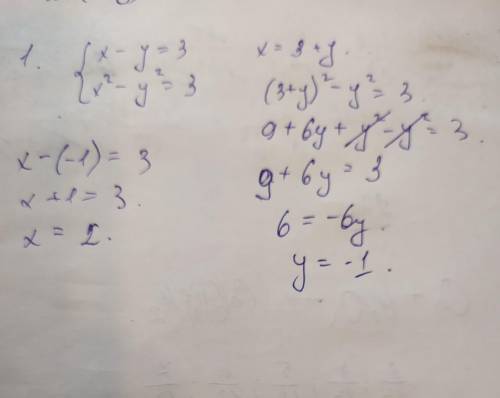 1. { x - y = 3
x² - y² = 3
x - (-1) = 3
x + 1 = 3.
x = 2.
x = 3 + y.
(3+y)² - y² = 3.
9 + 6y + y² - y² = 3.
9 + 6y = 3
6 = -6y.
y = -1.